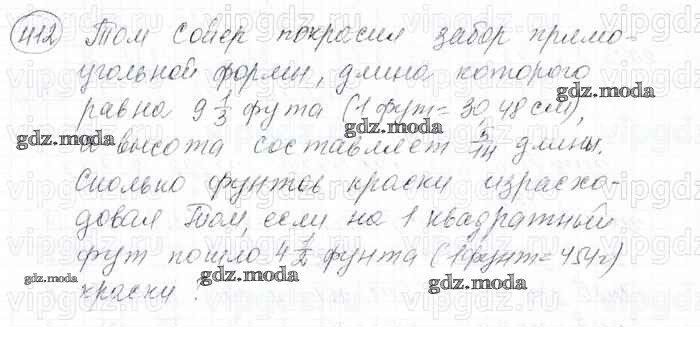 412 Том Сойер покрасил забор прямо-
угольной формы, длина которого
равна 9 1/3 фута (1 фут = 30,48 см),
а высота составляет 5/14 длины.
Сколько фунтов краски израсхо-
довал Том, если на 1 квадратный
фут пошло 4 1/2 фунта (1 фунт = 454г)
краски?
gdz.moda
gdz.moda
gdz.moda
gdz.moda
gdz.moda
gdz.moda